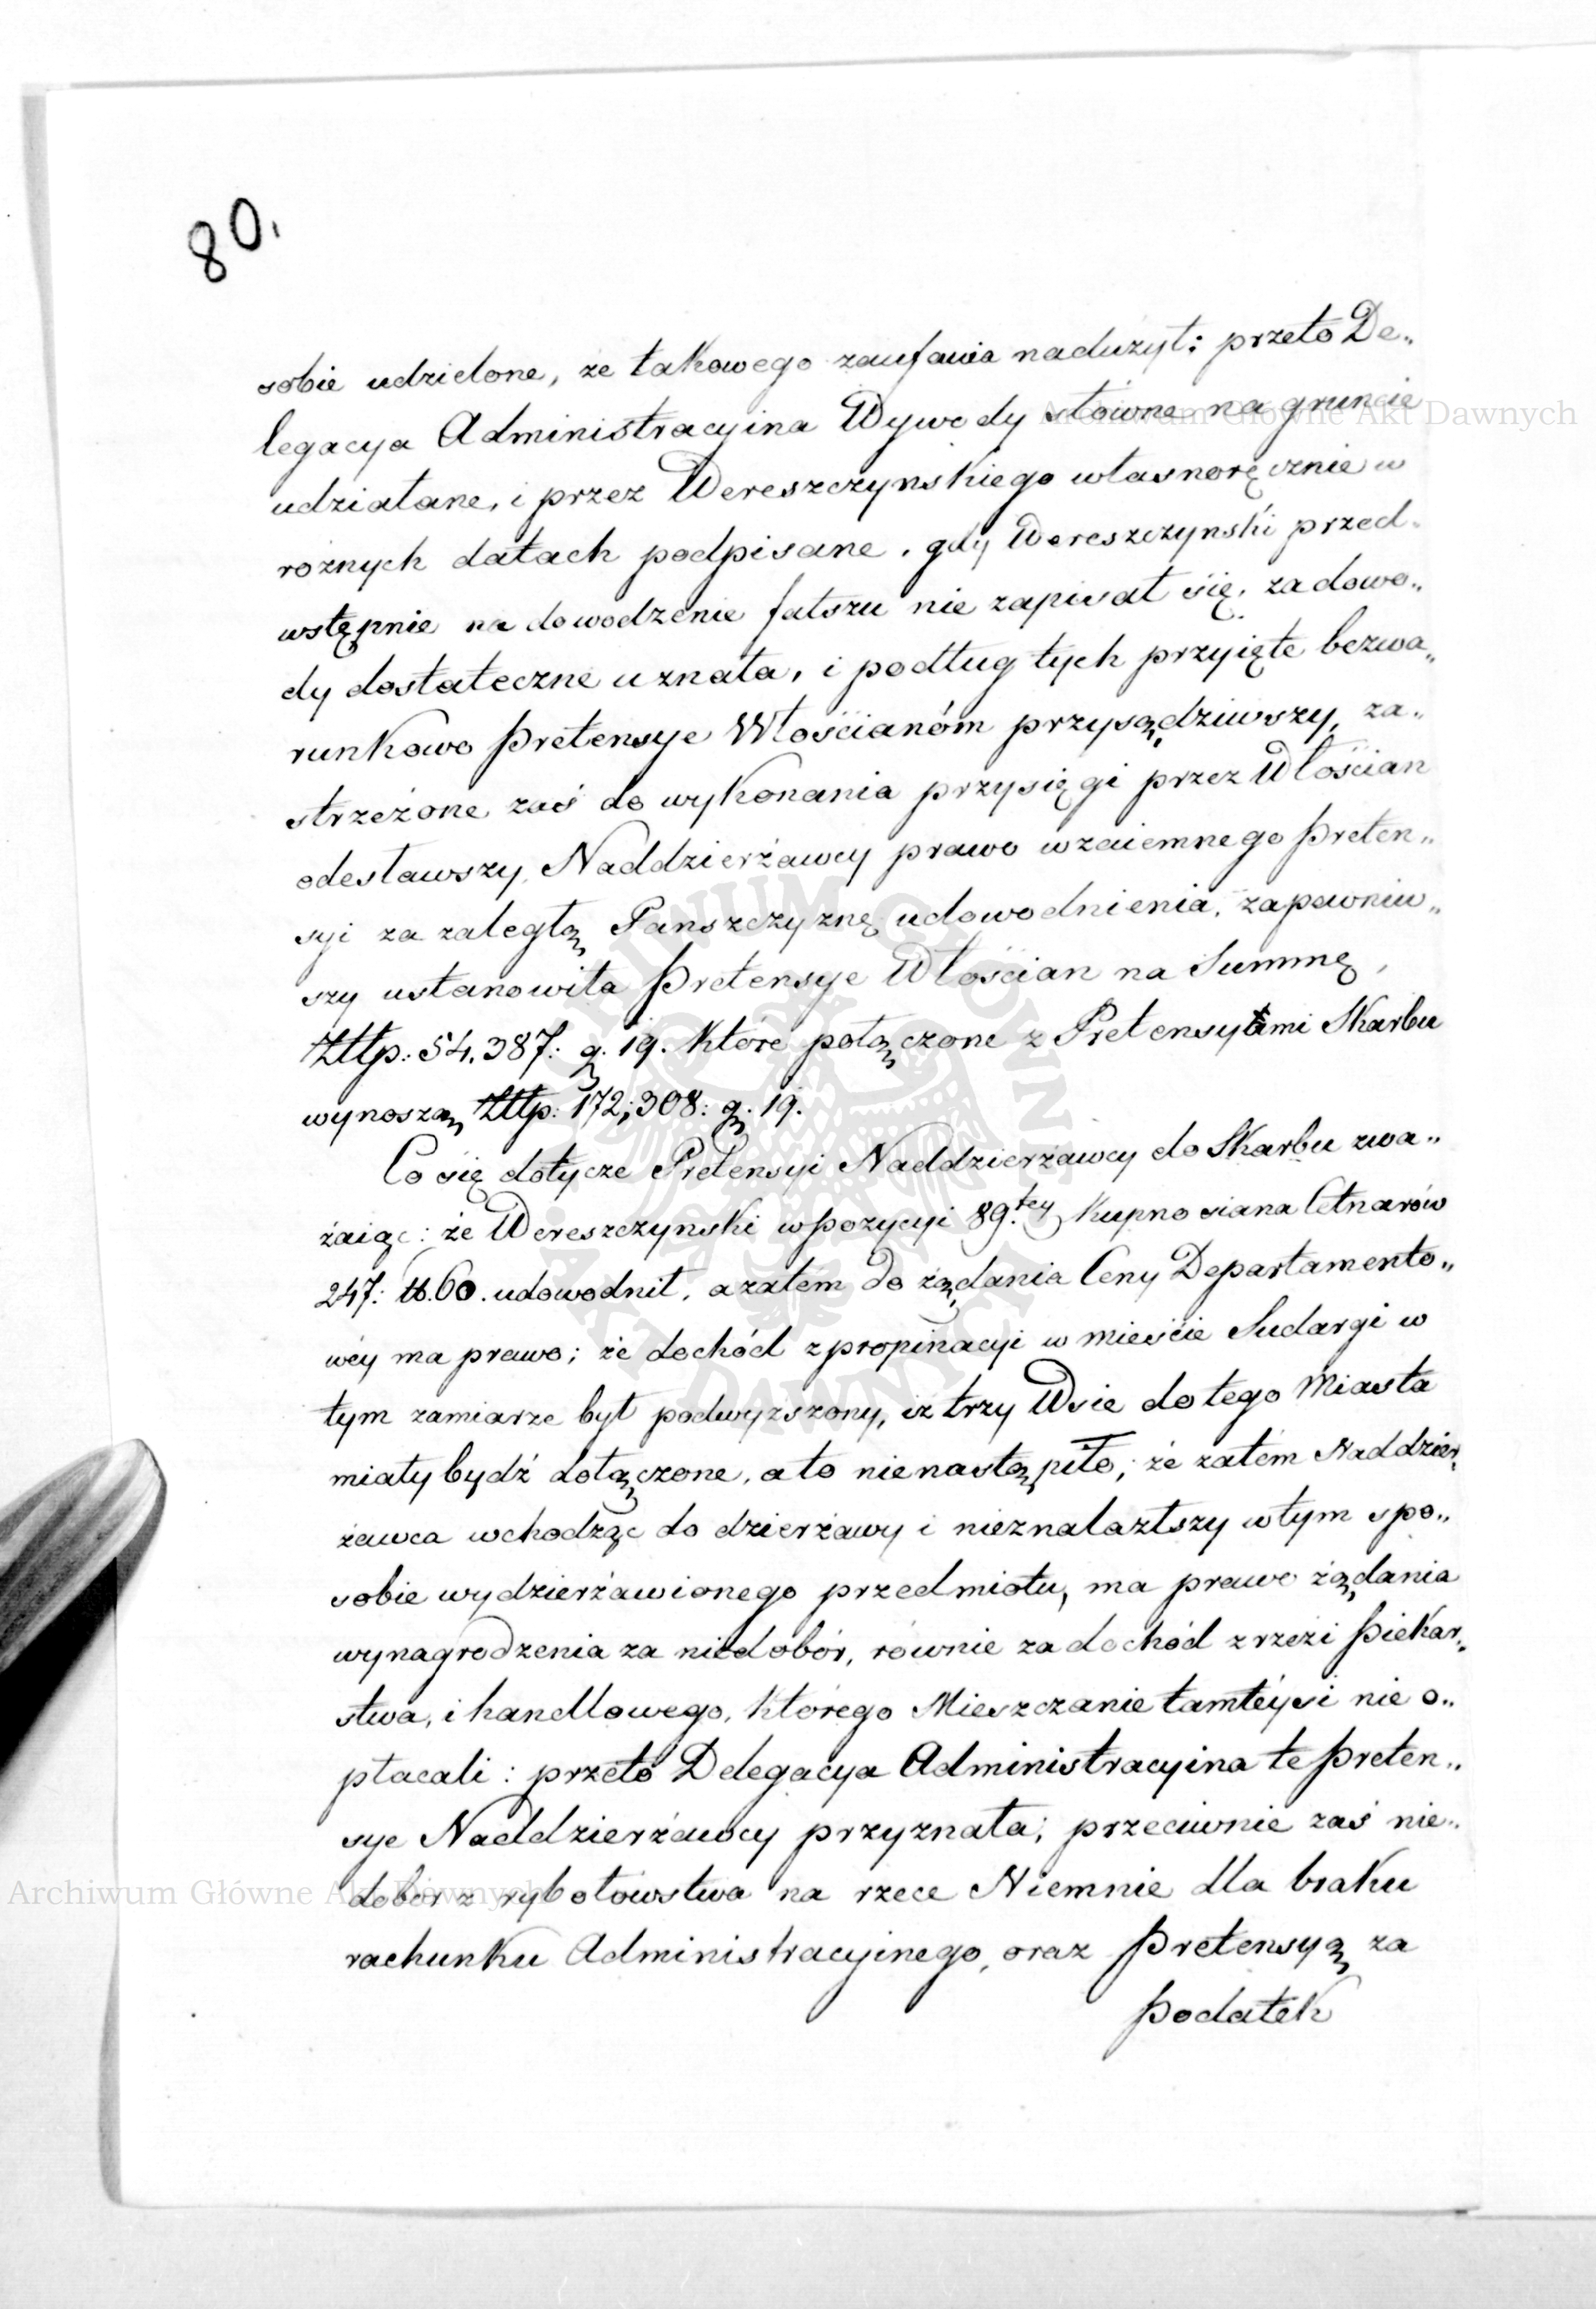 80.
sobie udzielone, że takowego zaufania nadużył: przeto De„
legacya Administracyina Wywody słowne na gruncie
udziałane, i przez Wereszczynskiego własnoręcznie w
rożnych datach podpisane, gdy Wereszczynski przed„
wstępnie na dowodzenie fałszu nie zapisał się, za dowo„
dy dostateczne uznała, i podług tych przyięte bezwa„
runkowo pretensye Włościanóm przysądziwszy, za„
strzeżone zaś do wykonania przysięgi przez Włościan
odesławszy, Naddzierżawcy prawo wzaiemnego preten„
syi za zaległą Panszczyznę udowodnienia, zapewniw„
szy ustanowiła pretensye Włościan na Summę,
Złłp: 54,387: g. 19. które połączone z Pretensyami Skarbu
wynoszą Złłp: 172,308: g. 19.
Co się dotycze Pretensyi Naddzierżawcy do Skarbu zwa„
żaiąc: że Wereszczynski w pozycyi 89.tey kupno siana Cetnarów
247: ℔.60. udowodnił, a zatem do żądania Ceny Departamento„
wéy ma prawo; że dochód z propinacyi w mieście Sudargi w
tym zamiarze był podwyższony, iż trzy Wsie do tego Miasta
miały bydź dołączone, a to nie nastąpiło; że zatem Naddzier„
żawca wchodząc do dzierżawy i nieznalazłszy w tym spo„
sobie wydzierżawionego przedmiotu, ma prawo żądania
wynagrodzenia za niedobór, równie za dochód z rzezi piekar„
stwa, i handlowego, którego Mieszczanie tamtéysi nie o„
płacali: przeto Delegacya Administracyina te preten„
sye Naddzierżawcy przyznała; przeciwnie zaś nie„
dobor z rybołówstwa na rzece Niemnie dla braku
rachunku Administracyinego, oraz pretensyą za
podatek
Archiwum Główne Akt Dawnych
Archiwum Główne Akt Dawnych
ARCHIWUM GŁÓWNE AKT DAWNYCH